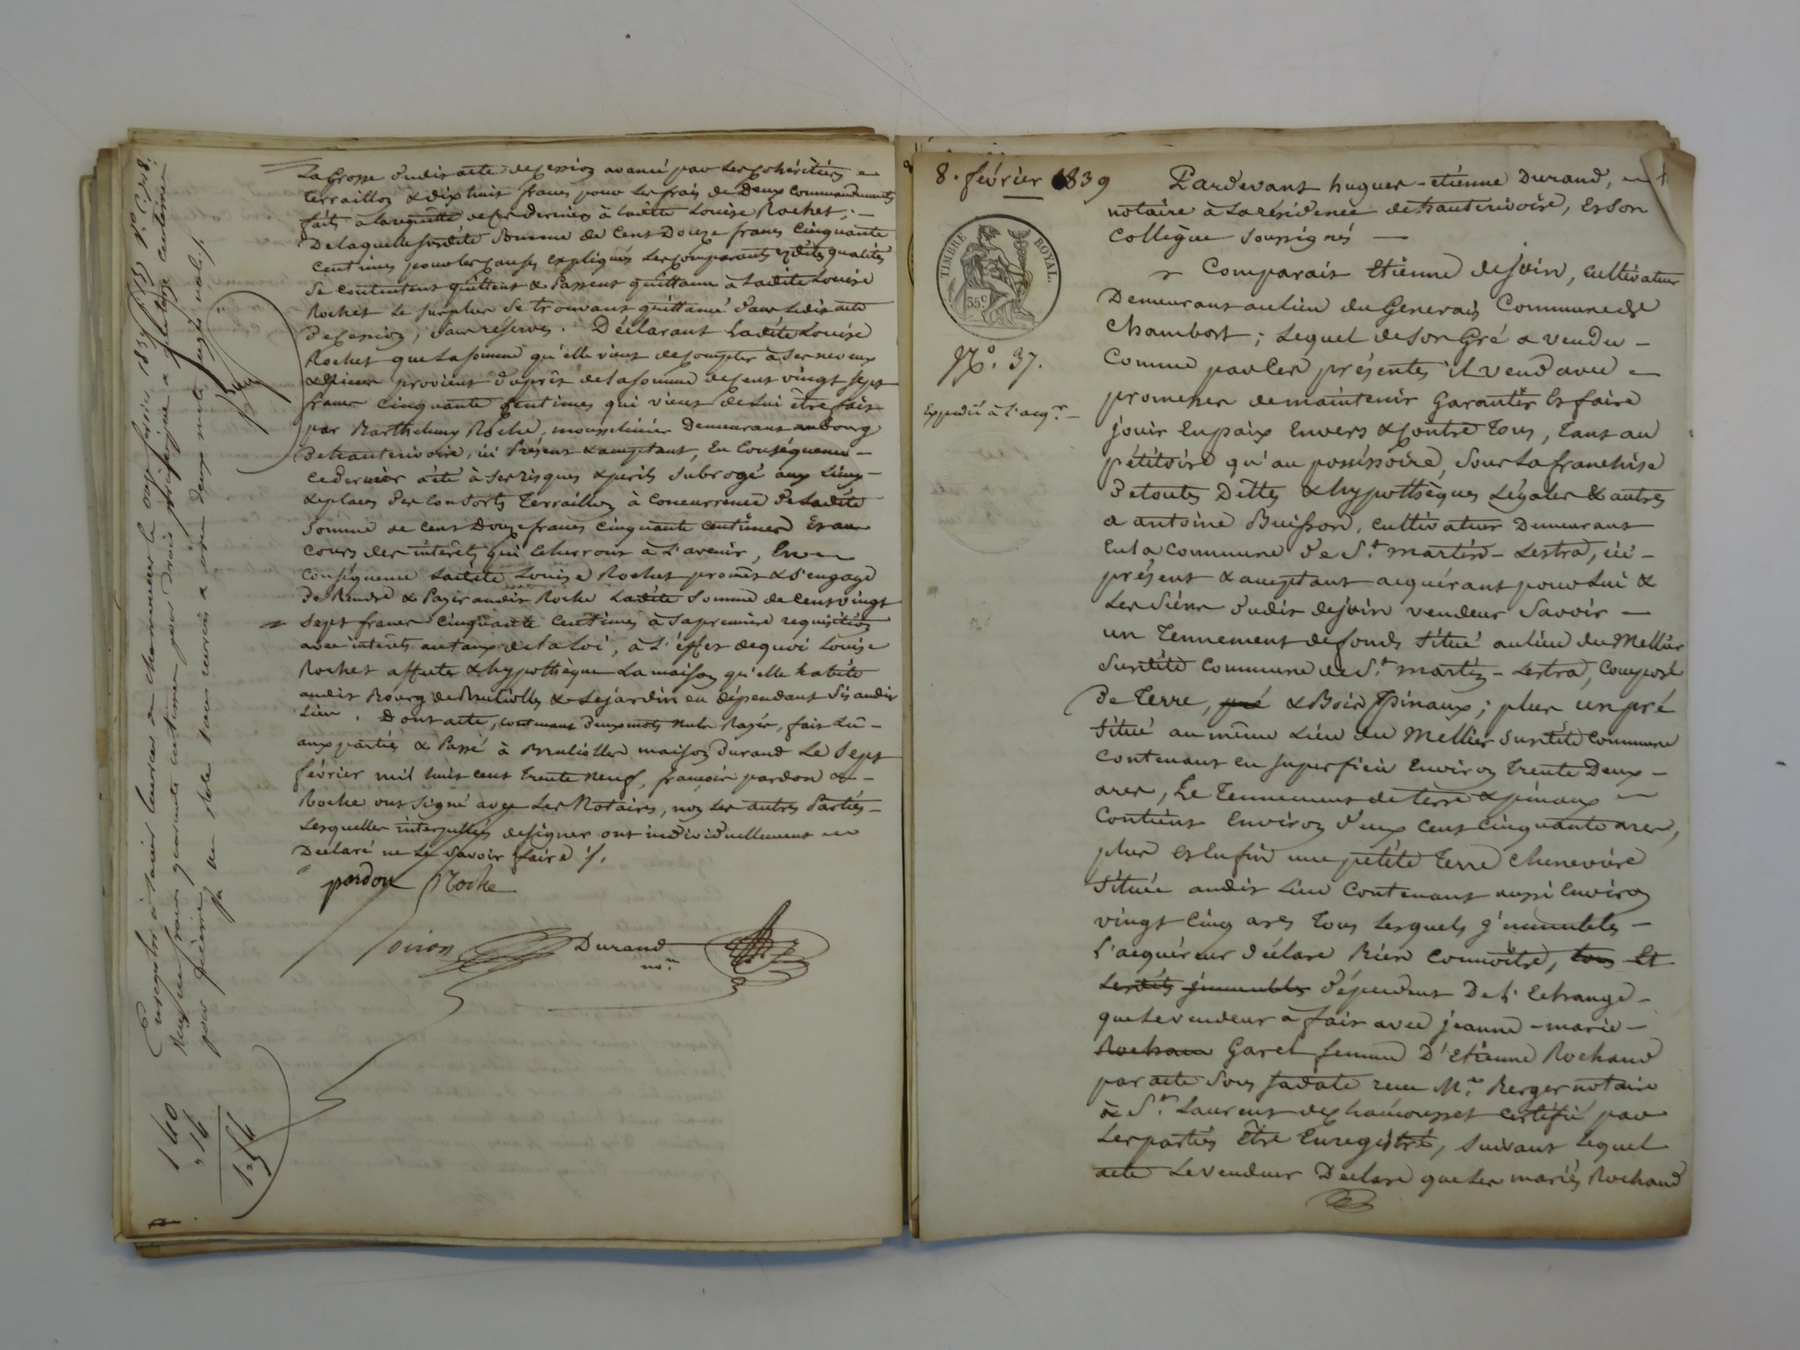 La Grosse dudit acte de cession avancé par les cohéritiers
terraillon & dix huit francs pour les frais de Deux commandements
faits à la requête de ces derniers à ladite Louise Rochet;
De laquelle susdite Somme de Cent Douze francs Cinquante
Centimes pour les causes expliqués les comparants esdites qualités
Se contentent quittent & Passent quittance à Ladite Louise
Rochet Le Surplus Se trouvant quittancé dans Ledit acte
De Cession, sans réserves. Déclarant Ladite Louise
Rochet que La Somme qu'elle vient de compter à Ses neveux
& nièces provient d'après de la Somme de Cent vingt Sept
francs Cinquante Centimes qui vient de Lui être fait
par Barthelemy Roche, mousselinier Demeurant au bourg
De hauterivoire, ici Présent & acceptant, En Conséquence
Ce dernier a été à Ses risques & périls Subrogé aux Lieux
& places des Consorts Terraillon à Concurrence De Ladite
Somme de Cent Douze francs Cinquante Centimes Et au
Cours des intérêts qui écherront à L'avenir, En
Conséquence Ladite Louise Rochet promet & S'engage
De Rendre & Payer audit Roche Ladite Somme de Cent vingt
Sept francs Cinquante Centimes à Sa première requisition
avec intérêts au taux de la Loi, à L'effet de quoi Louise
Rochet affecte & hypothèque La maison qu'elle habite
audit Bourg de Brullioles & Le jardin en dépendant Sis audit
Lieu. Dont acte, contenant deux mots nuls Rayés, fait Lu
aux parties & Passé à Brullioles maison Durand Le Sept
février mil huit cent trente neuf, françois pardon &
Roche ont Signé avec Les Notaires, non Les autres Parties
Lesquelles interpellées de signer ont individuellement
Déclaré ne Le Savoir faire /.
pardon Roche
Durand
no.re
160
16
8. février 1839
TIMBRE ROYAL.
35c
No. 37.
Expédié à l'acq.r
Pardevant hugues-étienne Durand,
notaire à La résidence de hauterivoire, et Son
Collègue Soussignés
Comparait Etienne dejoin, cultivateur
Demeurant au lieu du Generais Commune de
Chambost; Lequel de Son Gré a vendu
Comme par Les présentes il vend avec
promesse de maintenir Garantir Et faire
jouir En paix Envers & Contre Tous, tant au
pétitoire qu'au possessoire, Sous La franchise
De toutes Dettes & hypothèques Légales & autres
a antoine Buisson, cultivateur Demeurant
En La Commune de St. martin-Lestra, ici
présent & acceptant acquérant pour Lui &
Les Siens dudit dejoin vendeur Savoir
un Tennement de fonds Situé au lieu du Mellier
Susdite Commune de St. martin-Lestra, Composé
De Terre, pré & Bois Epinaux; plus un pré
Situé au même Lieu du Mellier Susdite Commune
Contenant en Superficie Environ Trente Deux
ares, Le Tennement de terre & épinaux
Contient Environ deux Cent Cinquante ares,
plus et Enfin une petite Terre Chenevière
Située audit Lieu Contenant aussi Environ
vingt Cinq ares Tous Lesquels immeubles
L'acquéreur déclare Bien Connoître, tous Et
Lesdits immeubles dépendent De L'Echange
que Le vendeur a fait avec jeanne-marie
Rochand Garel femme D'Etienne Rochand
par acte Sous Sa date reçu Me. Berger notaire
à St. Laurent de Chamousset certifié par
Les parties Être Enregistré, Suivant Lequel
acte Le vendeur Déclare que Les mariés Rochand